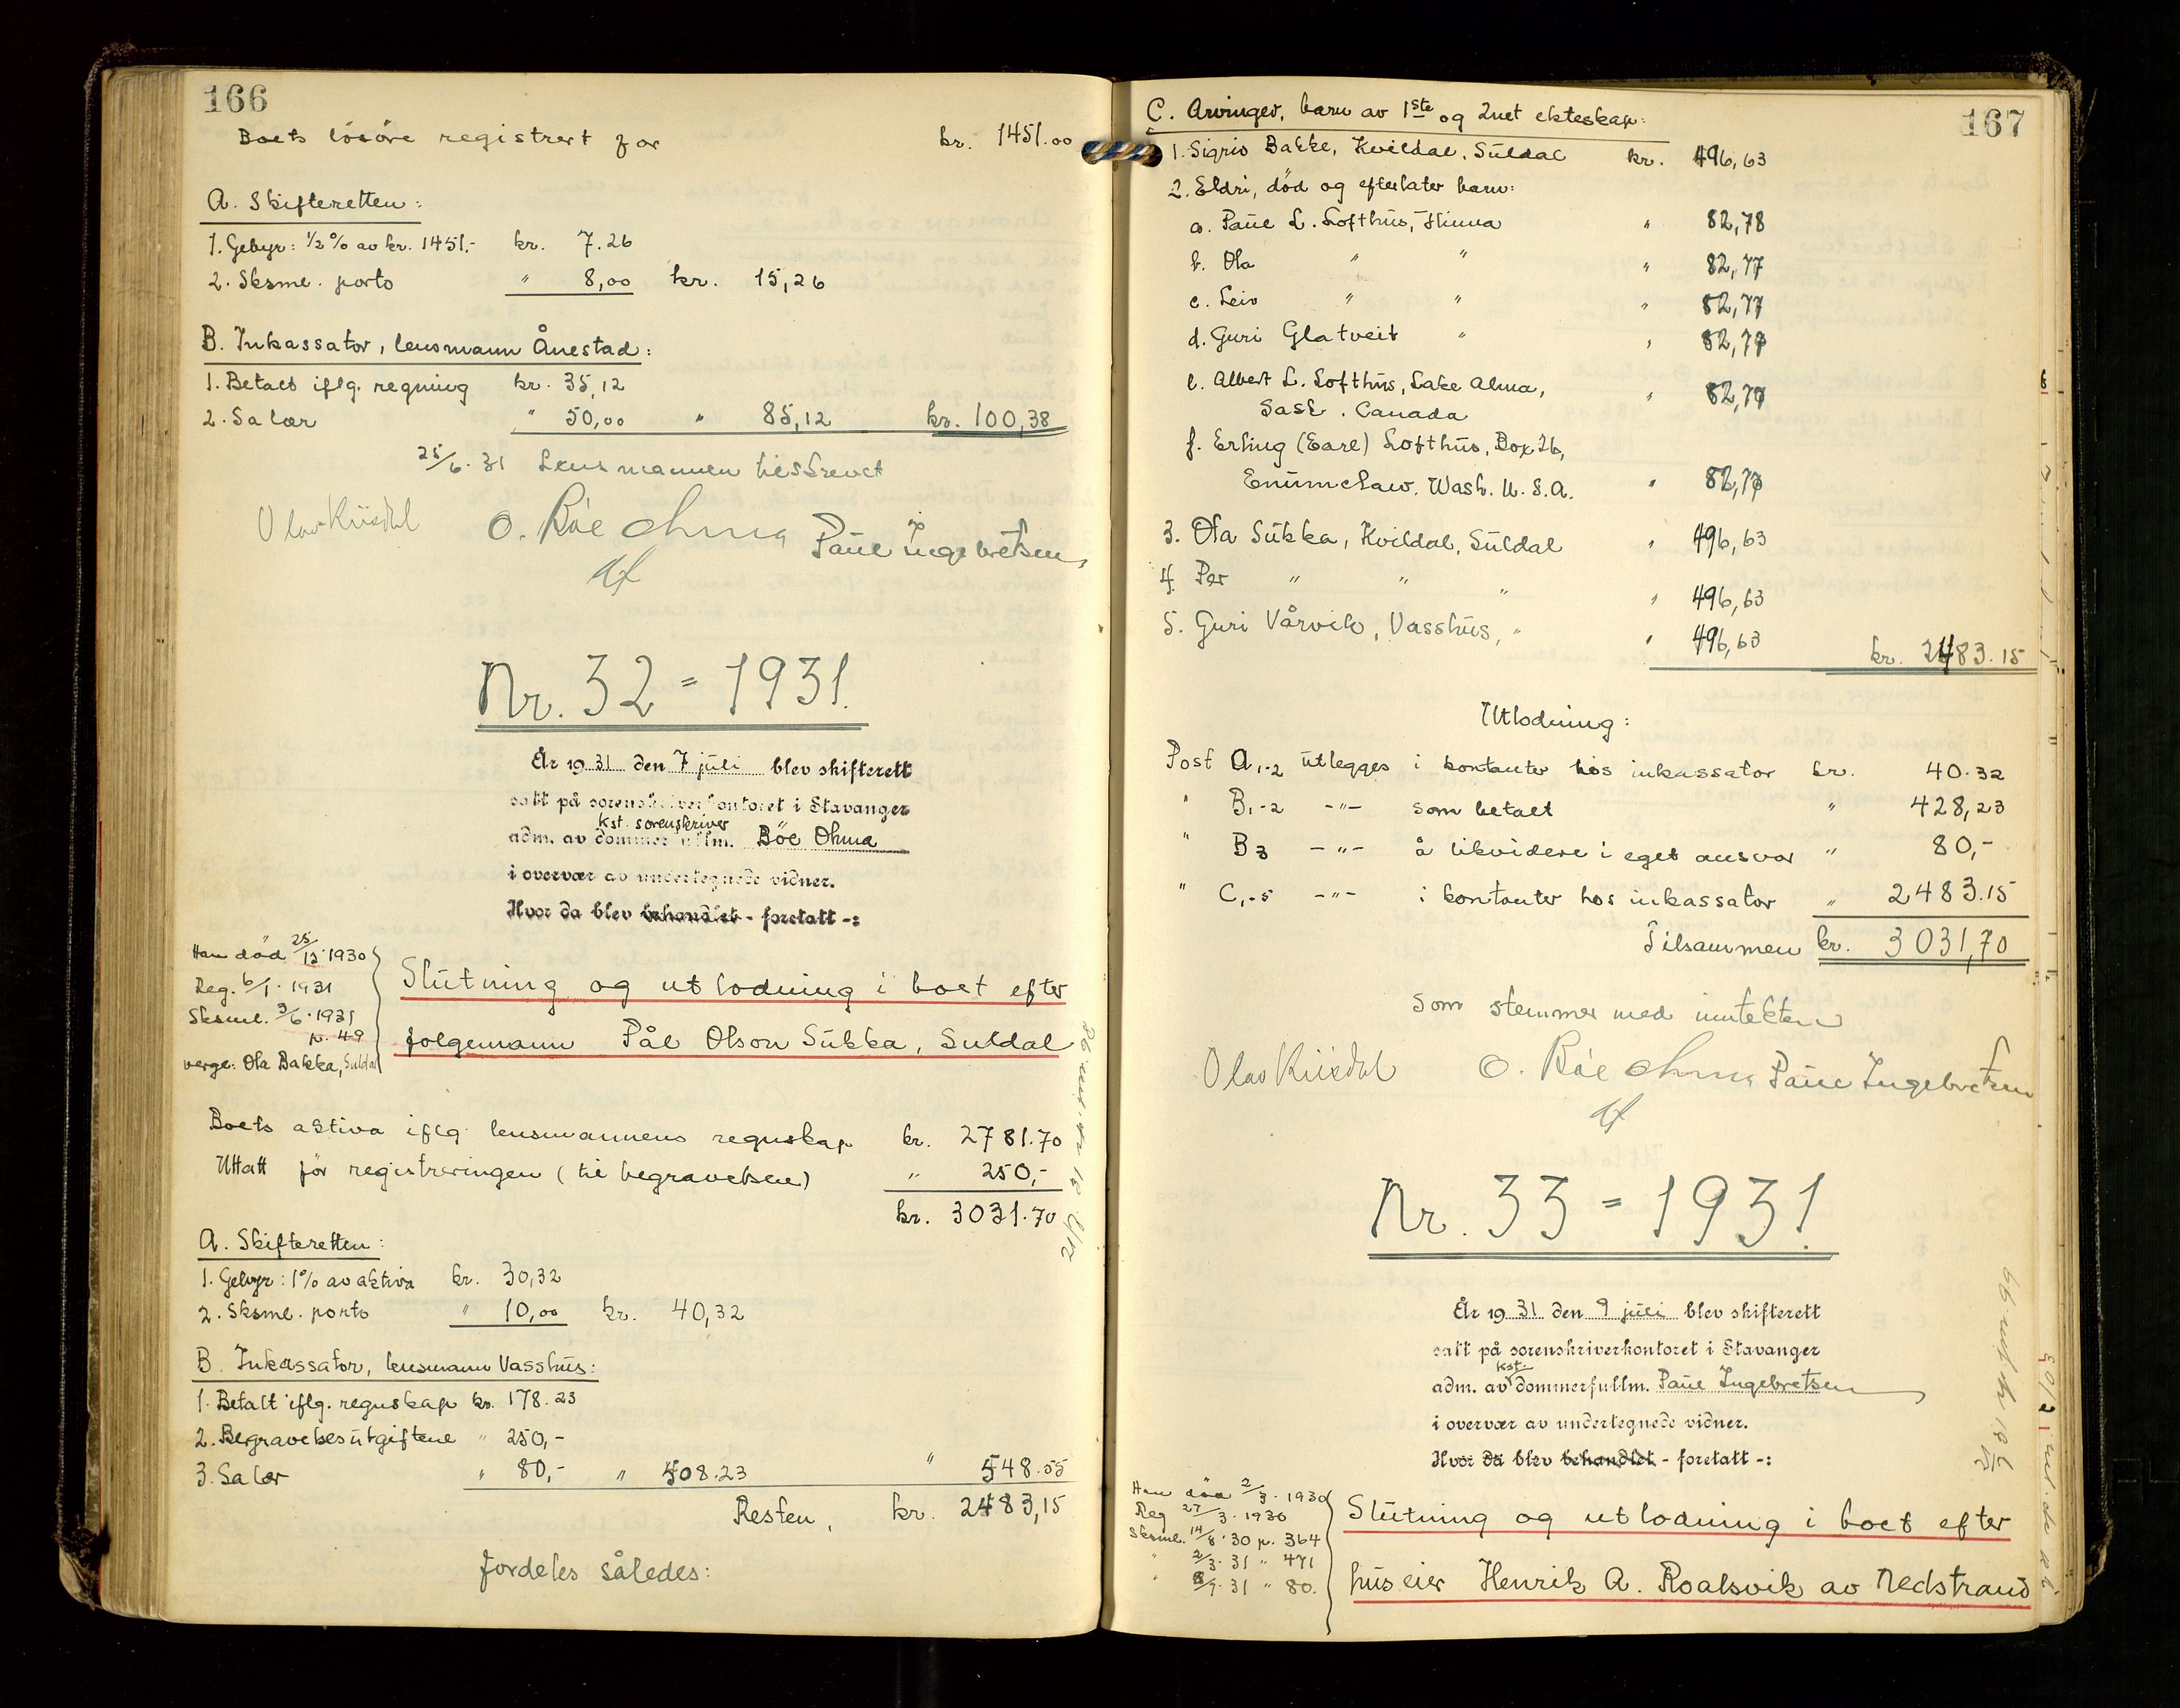 166
Boets lösöre registrert for kr. 1451.00
A. Skifteretten:
1. Gebyr: ½ % av kr. 1451,- kr. 7.26
2. Sksml. porto " 8,00 kr. 15,26
B. Inkassator, lensmann Ånestad:
1. Betalt iflg. regning kr. 35,12
2. Salær " 50,00 " 85,12 kr. 100,38
25/6.31 Lensmannen tilskrevet
Olav Kiisdal O. Böe Ohma Paul Ingebretsen
kf
Nr. 32 = 1931.
År 1931 den 7 juli blev skifterett
satt på sorenskriverkontoret i Stavanger
kst. sorenskriver
adm. av dommerfullm. Böe Ohma
i overvær av undertegnede vidner.
Hvor da blev behandlet - foretatt -:
Han död 25/12.1930
Reg. 6/1.1931
Sksml. 3/6.1931
p. 49
verge: Ola Bakka, Suldal
Slutning og utlodning i boet efter
folgemann Pål Olson Sukka, Suldal
Boets aktiva iflg. lensmannens regnskap kr. 2781.70
Uttatt för registreringen (til begravelsen) " 250,-
kr. 3031.70
A. Skifteretten:
1. Gebyr: 1% av aktiva kr. 30,32
2. Sksml. porto " 10,00 kr. 40,32
B. Inkassator, lensmann Vasshus:
1. Betalt iflg. regnskap kr. 178.23
2. Begravelsesutgiftene " 250,-
3. Salær " 80,- " 508.23 " 548.55
Resten, kr. 2483,15
fordeles således:
167
C. Arvinger, barn av 1ste og 2net ekteskap:
1. Sigrid Bakke, Kvildal, Suldal kr. 496,63
2. Eldri, död og efterlater barn:
a. Paul L. Lofthus, Hinna " 82,78
b. Ola " " " 82,77
c. Leiv " " " 82,77
d. Guri Glatveit " " 82,77
e. Albert L. Lofthus, Lake Alma,
Sask. Canada " 82,77
f. Erling (Earl) Lofthus, Box 26,
Enumclaw. Wash. U.S.A. " 82,77
3. Ola Sukka, Kvildal, Suldal " 496,63
4. Per " " " " 496,63
5. Guri Vårvik, Vasshus, " " 496,63 kr. 2483.15
Utlodning:
Post A,1-2 utlegges i kontanter hos inkassator kr. 40.32
" B1-2 -"- som betalt " 428,23
" B3 -"- å likvidere i eget ansvar " 80,-
" C,1-5 -"- i kontanter hos inkassator " 2483.15
Tilsammen kr. 3031,70
som stemmer med inntekten
Olav Kiisdal O. Böe Ohma Paul Ingebretsen
kf
Nr. 33 = 1931.
År 1931 den 9 juli blev skifterett
satt på sorenskriverkontoret i Stavanger
kst.
adm. av dommerfullm. Paul Ingebretsen
i overvær av undertegnede vidner.
Hvor da blev behandlet - foretatt -:
Han död 2/3.1930
Reg 27/3.1930
Sksml. 14/8.30 p. 364
" 2/3.31 " 471
" 8/7.31 " 80.
Slutning og utlodning i boet efter
huseier Henrik A. Roalsvik av Nedstrand